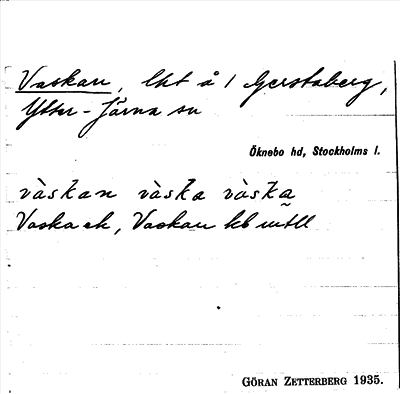 Vaskan, lht å 1 Gerstaberg,
Ytter-Järna sn
Öknebo hd, Stockholms l.
vàskan vàska vàska̰
Vaska ek, Vaskan kb
GÖRAN ZETTERBERG 1935.